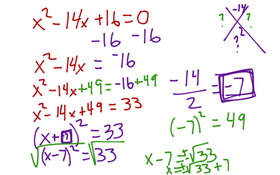 x² - 14x + 16 = 0
-16 -16
x² - 14x = -16
x² - 14x + 49 = -16 + 49
x² - 14x + 49 = 33
(x + -7)² = 33
√(x - 7)² = √33
-14
? ?
?²
-14/2 = -7
(-7)² = 49
x - 7 = ±√33
x = ±√33 + 7